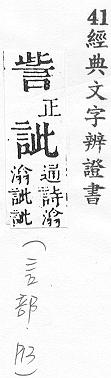 41經典文字辨證書
訾
正
訿
通詩潝
潝訿訿
(言部.P13)